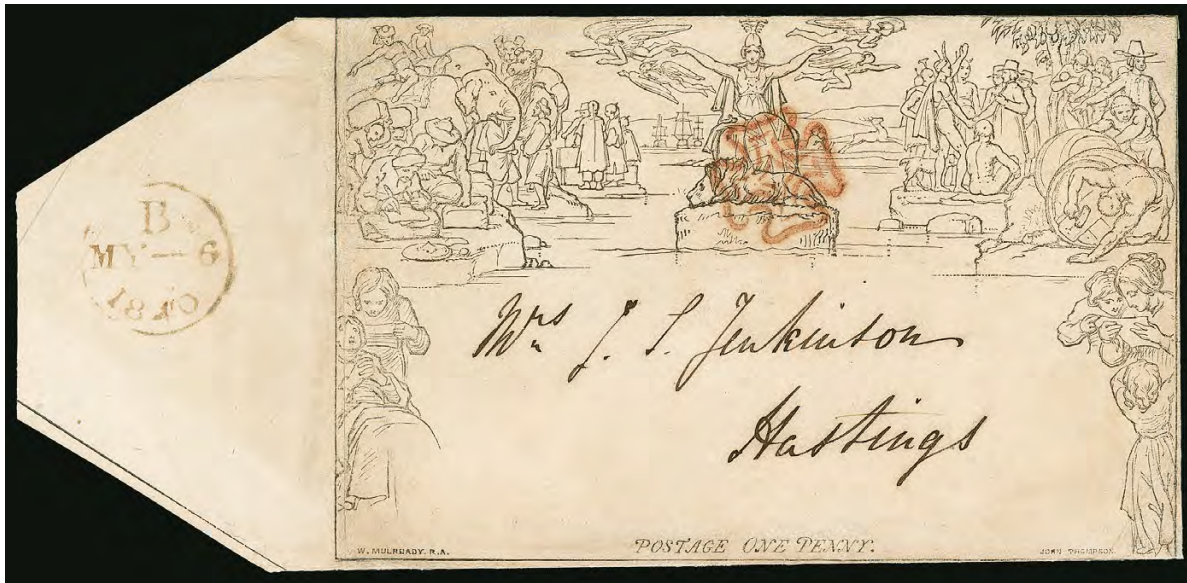 B
MY — 6
1840
Mrs J. S. Jenkinson
Hastings
W. MULREADY. R.A.
POSTAGE ONE PENNY.
JOHN THOMPSON